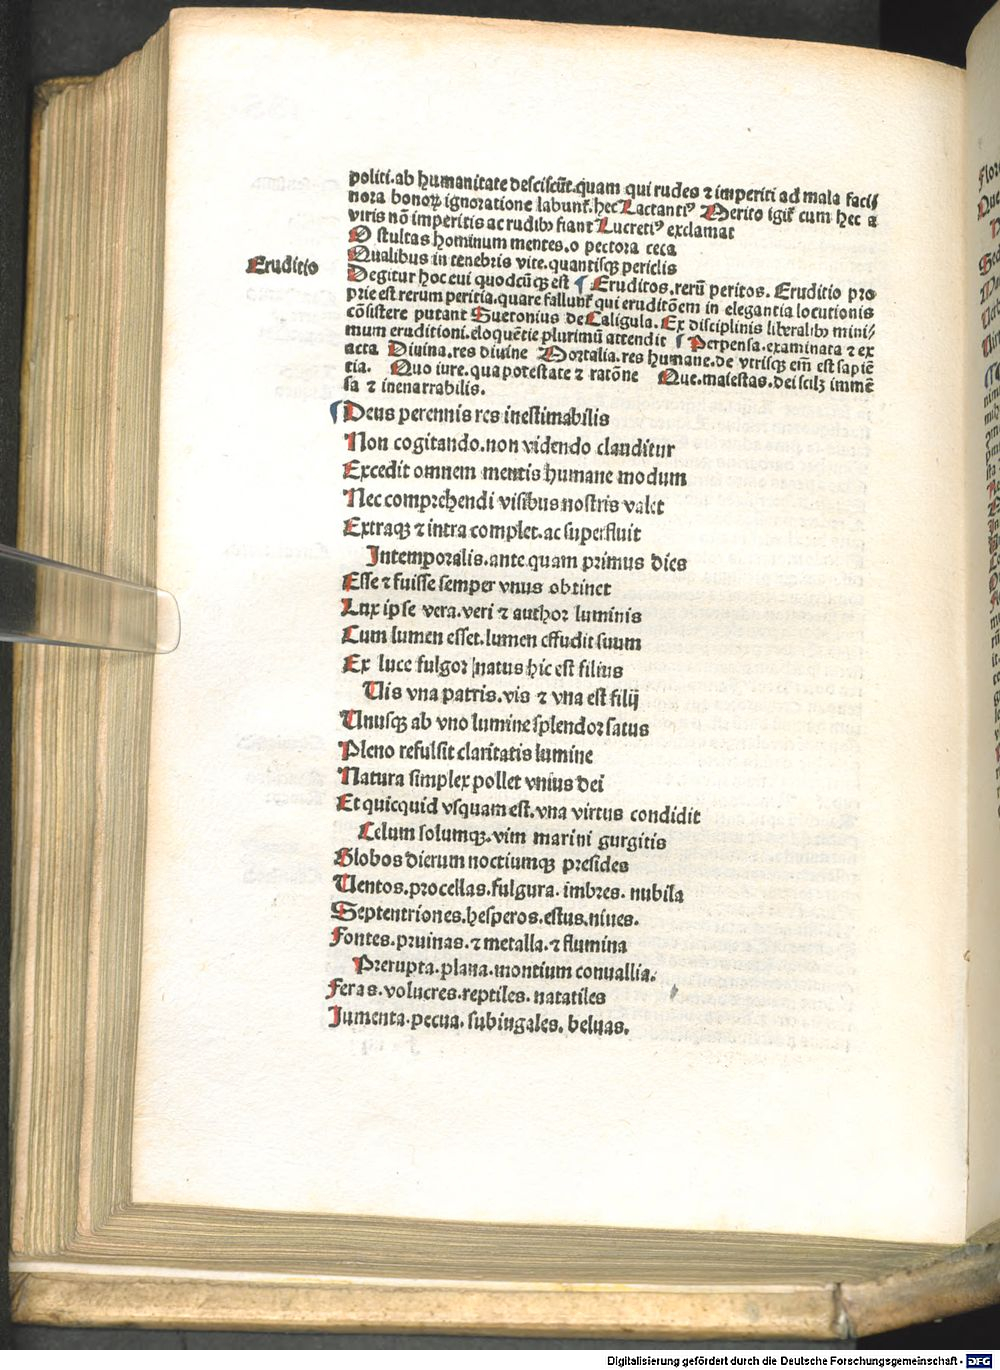 politi. ab humanitate desciscūt. quam qui rudes ⁊ imperiti ad mala faci//
nora bonoꝝ ignoratione labunt̄. hec Lactantiꝰ Merito igit̄ cum hec a
viris nō imperitis ac rudibꝰ fiant Lucretiꝰ exclamat
O stultas hominum mentes. o pectora ceca
Qualibus in tenebris vite. quantisqꝫ periclis
Eruditio
Degitur hoc eui quodcūqꝫ est ¶ Eruditos. rerū peritos. Eruditio pro
prie est rerum peritia. quare fallunt̄ qui eruditōem in elegantia locutionis
cōsistere putant Suetonius de Caligula. Ex disciplinis liberalibꝰ mini//
mum eruditioni. eloquētie plurimū attendit ¶ Perpensa. examinata ⁊ ex
acta Diuina. res diuine Mortalia. res humane. de vtrisqꝫ em̄ est sapiē
tia. Quo iure. qua potestate ⁊ ratōne Que. maiestas. dei scilꝫ immē
sa ⁊ inenarrabilis.
¶ Deus perennis res inestimabilis
Non cogitando. non videndo clauditur
Excedit omnem mentis humane modum
Nec comprehendi visibus nostris valet
Extraqꝫ ⁊ intra complet. ac superfluit
Intemporalis. ante quam primus dies
Esse ⁊ fuisse semper vnus obtinet
Lux ipse vera. veri ⁊ author luminis
Cum lumen esset. lumen effudit suum
Ex luce fulgor natus hic est filius
Uis vna patris. vis ⁊ vna est filij
Unusqꝫ ab vno lumine splendor satus
Pleno refulsit claritatis lumine
Natura simplex pollet vnius dei
Et quicquid vsquam est. vna virtus condidit
Celum solumqꝫ. vim marini gurgitis
Globos dierum noctiumqꝫ presides
Uentos. procellas. fulgura. imbres. nubila
Septentriones. hesperos. estus. niues.
Fontes. pruinas. ⁊ metalla. ⁊ flumina
Prerupta. plana. montium conuallia.
Feras. volucres. reptiles. natatiles
Iumenta. pecua. subiugales. beluas.
Digitalisierung gefördert durch die Deutsche Forschungsgemeinschaft - DFG